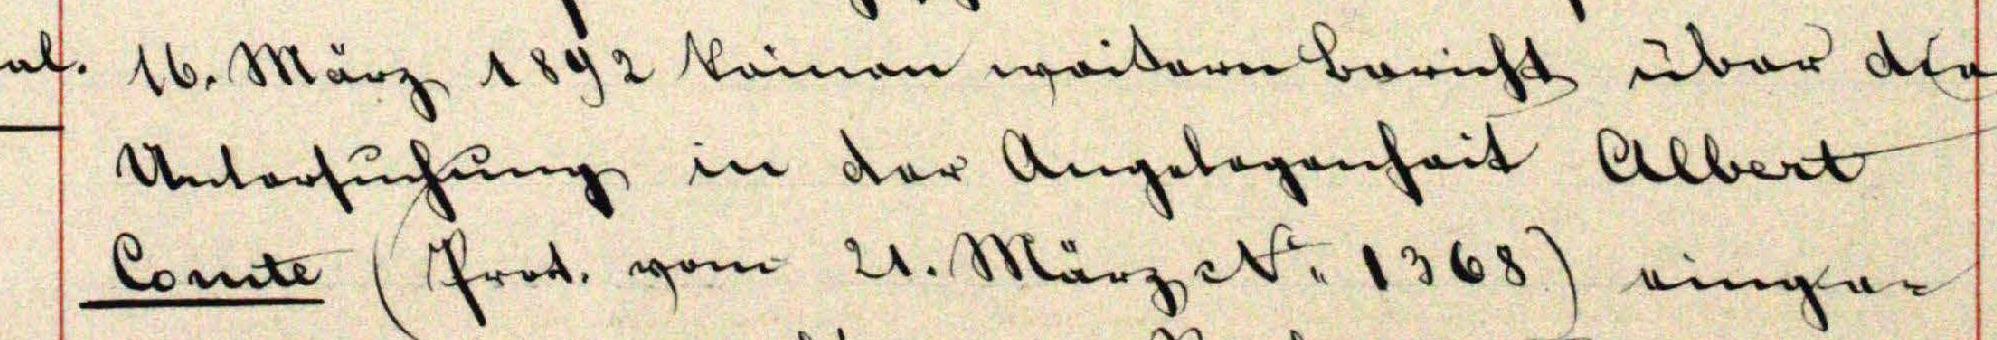 al. 16. März 1892 keinen weitern Bericht über die
Untersuchung in der Angelegenheit Albert
Comte (Prot. vom 21. März No. 1368) einge-